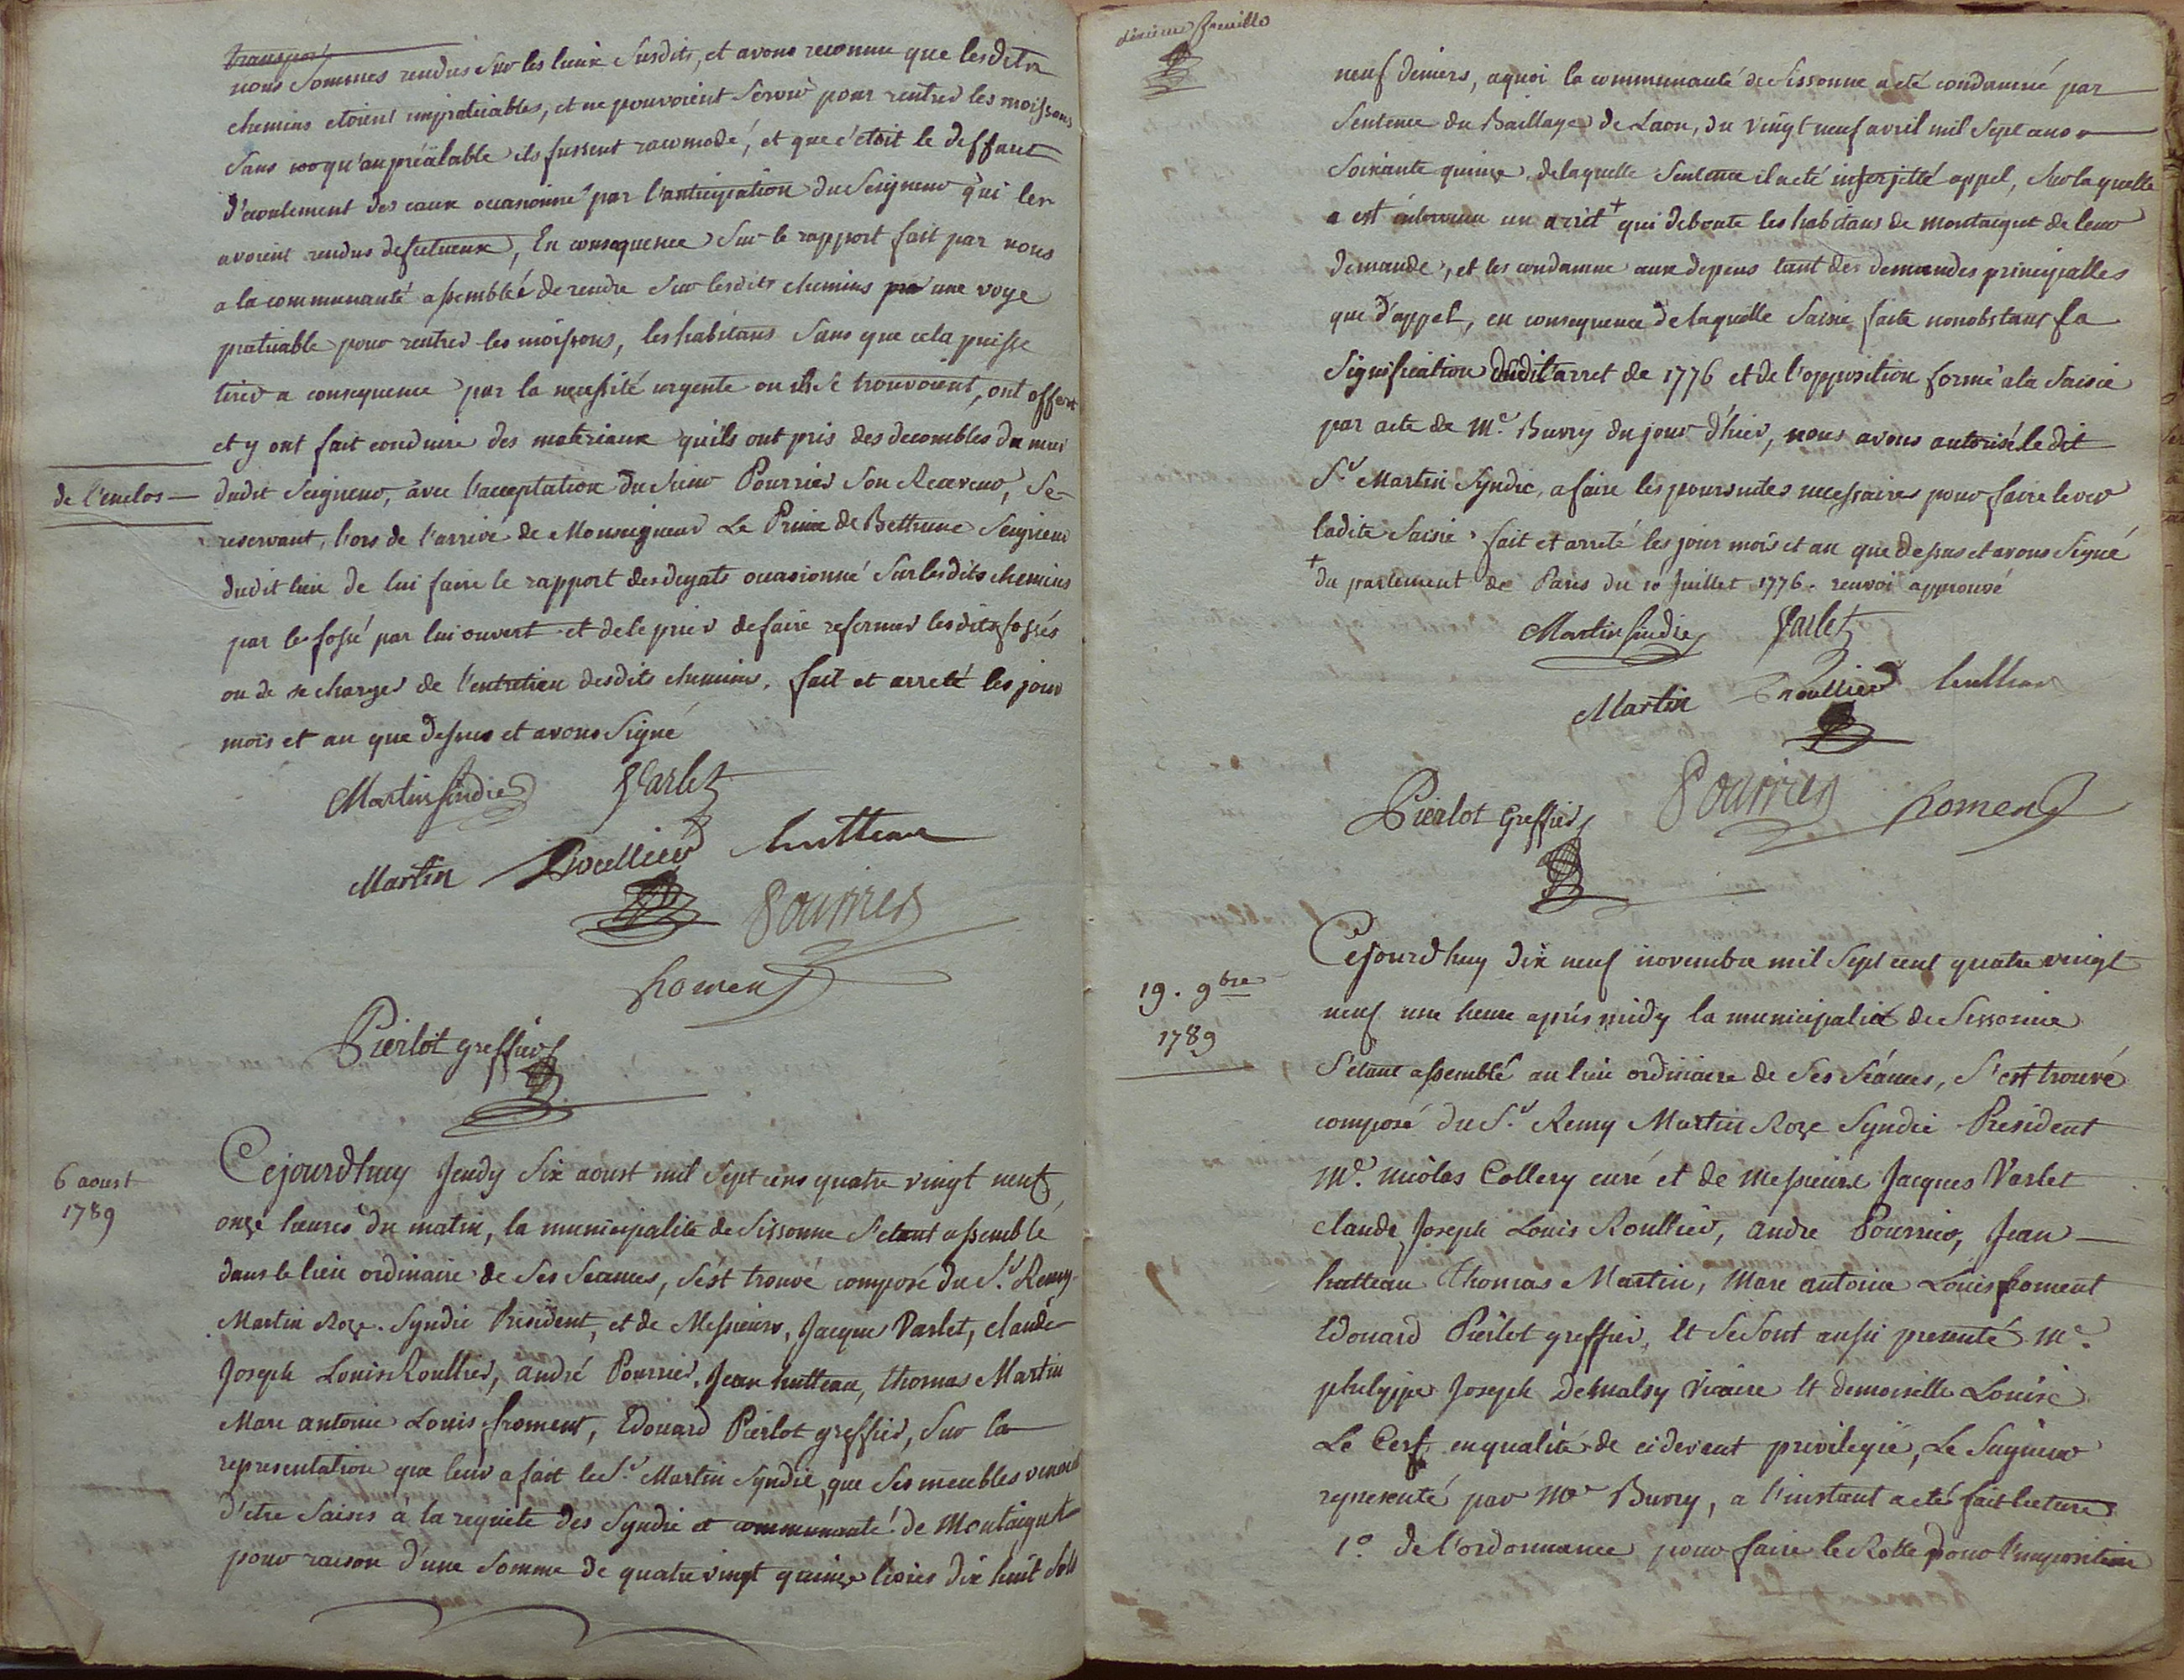 transport
nous sommes rendus sur les lieux susdits, et avons reconnu que lesdits
chemins etoient impraticables, et ne pouvoient servir pour rentrer les moissons
sans qu'au préalable ils fussent racomodé, et que c'étoit le deffaut
d'ecoulement des eaux occasionné par l'anticipation du Seigneur qui les
avoient rendus defectueux, En consequence sur le rapport fait par nous
a la communauté assembleé de rendre sur lesdits chemins une voye
praticable pour rentrer les moissons, les habitans sans que cela puisse
tirer a consequence par la necessité urgente ou ils se trouvoient, ont offert
et y ont fait conduire des materiaux quils ont pris des decombles du mur
de l'enclos —
dudit Seigneur, avec l'acceptation du Sieur Pourrier son Receveur, se
reservant, lors de l'arrivé de Monseigneur Le Prince de Bethune Seigneur
dudit lieu de lui faire le rapport des degats occasionné sur lesdits chemins
par le fossé par lui ouvert et de le prier de faire refermer lesdits fossés
ou de se charger de l'entretien desdits chemins. fait et arreté les jour
mois et an que dessus et avons signé
Martin sindic Varlet
Martin Roullier hutteau
Pourrier
froment
Pierlot greffier
6 aoust
1789
Cejourdhuy Jeudy Six aoust mil sept cens quatre vingt neuf
onze heures du matin, la municipalité de Sissonne s'etant assemblé
dans le lieu ordinaire de ses seances, s'est trouvé composé du S.r Remy
Martin Roze. Syndic President, et de Messieurs, Jacques Varlet, claude
Joseph Louis Roullier, andré Pourrier, Jean hutteau, thomas Martin
Marc antoine Louis froment, Edouard Pierlot greffier, Sur la
representation que leur a fait le S.r Martin Syndic, que ses meubles venoient
d'etre saisis à la requete des Syndic et communauté de Montaigut
pour raison d'une somme de quatre vingt quinze livres dix huit sols
dixieme feuille
neuf deniers, aquoi la communauté de Sissonne a été condamné par
Sentence du Baillage de Laon, du vingt neuf avril mil sept cens
soixante quinze, delaquelle sentence il a eté interjetté appel, sur laquelle
a est intervenu un arret + qui deboute les habitans de montaigut de leur
demande, et les condamne aux depens tant des demandes principalles
que d'appel, en consequence de laquelle saisie faite nonobstant la
signification dudit arret de 1776 et de l'opposition formé a la saisie
par acte de M.e Buvry du jour d'hier, nous avons autorisé le dit
S.r Martin Syndic, a faire les poursuites necessaires pour faire lever
ladite saisie. fait et arreté les jour mois et an que dessus et avons signé
+ du parlement de Paris du 10 Juillet 1776. renvoi approuvé
Martin sindic Varlet
Martin Roullier hutteau
Pierlot greffier Pourrier froment
19. 9bre
1789
Cejourdhuy dix neuf novembre mil sept cent quatre vingt
neuf une heure après midy la municipalité de Sissonne
s'etant assemblé au lieu ordinaire de ses séances, s'est trouvé
composé du S.r Remy Martin Roze Syndic President
M.e nicolas Collery curé et de Messieurs Jacques Varlet
claude Joseph Louis Roullier, andre Pourrier, Jean
hutteau Thomas Martin, Marc antoine Louis froment
Edouard Pierlot greffier, Et se sont aussi presenté M.e
philippe Joseph Demalsy Vicaire Et demoiselle Louise
Le Cerf en qualité de cidevant privilegié, Le Seigneur
representé par M.e Buvry, a l'instant a eté fait lecture
1.o de l'ordonnance pour faire le Rolle pour l'imposition